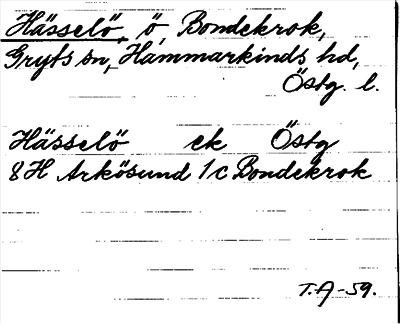 Hässelö, ö, Bondekrok,
Gryts sn, Hammarkinds hd,
Östg. l.
Hässelö ek Östg
8H Arkösund 1c Bondekrok
T.A-59.